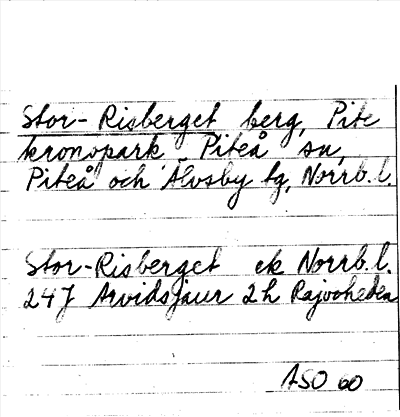 Stor-Risberget berg, Pite
kronopark Piteå sn,
Piteå och Älvsby tg, Norrb.l.
Stor-Risberget ek Norrb.l.
24J Arvidsjaur 2h Rajvoheden
ASO 60